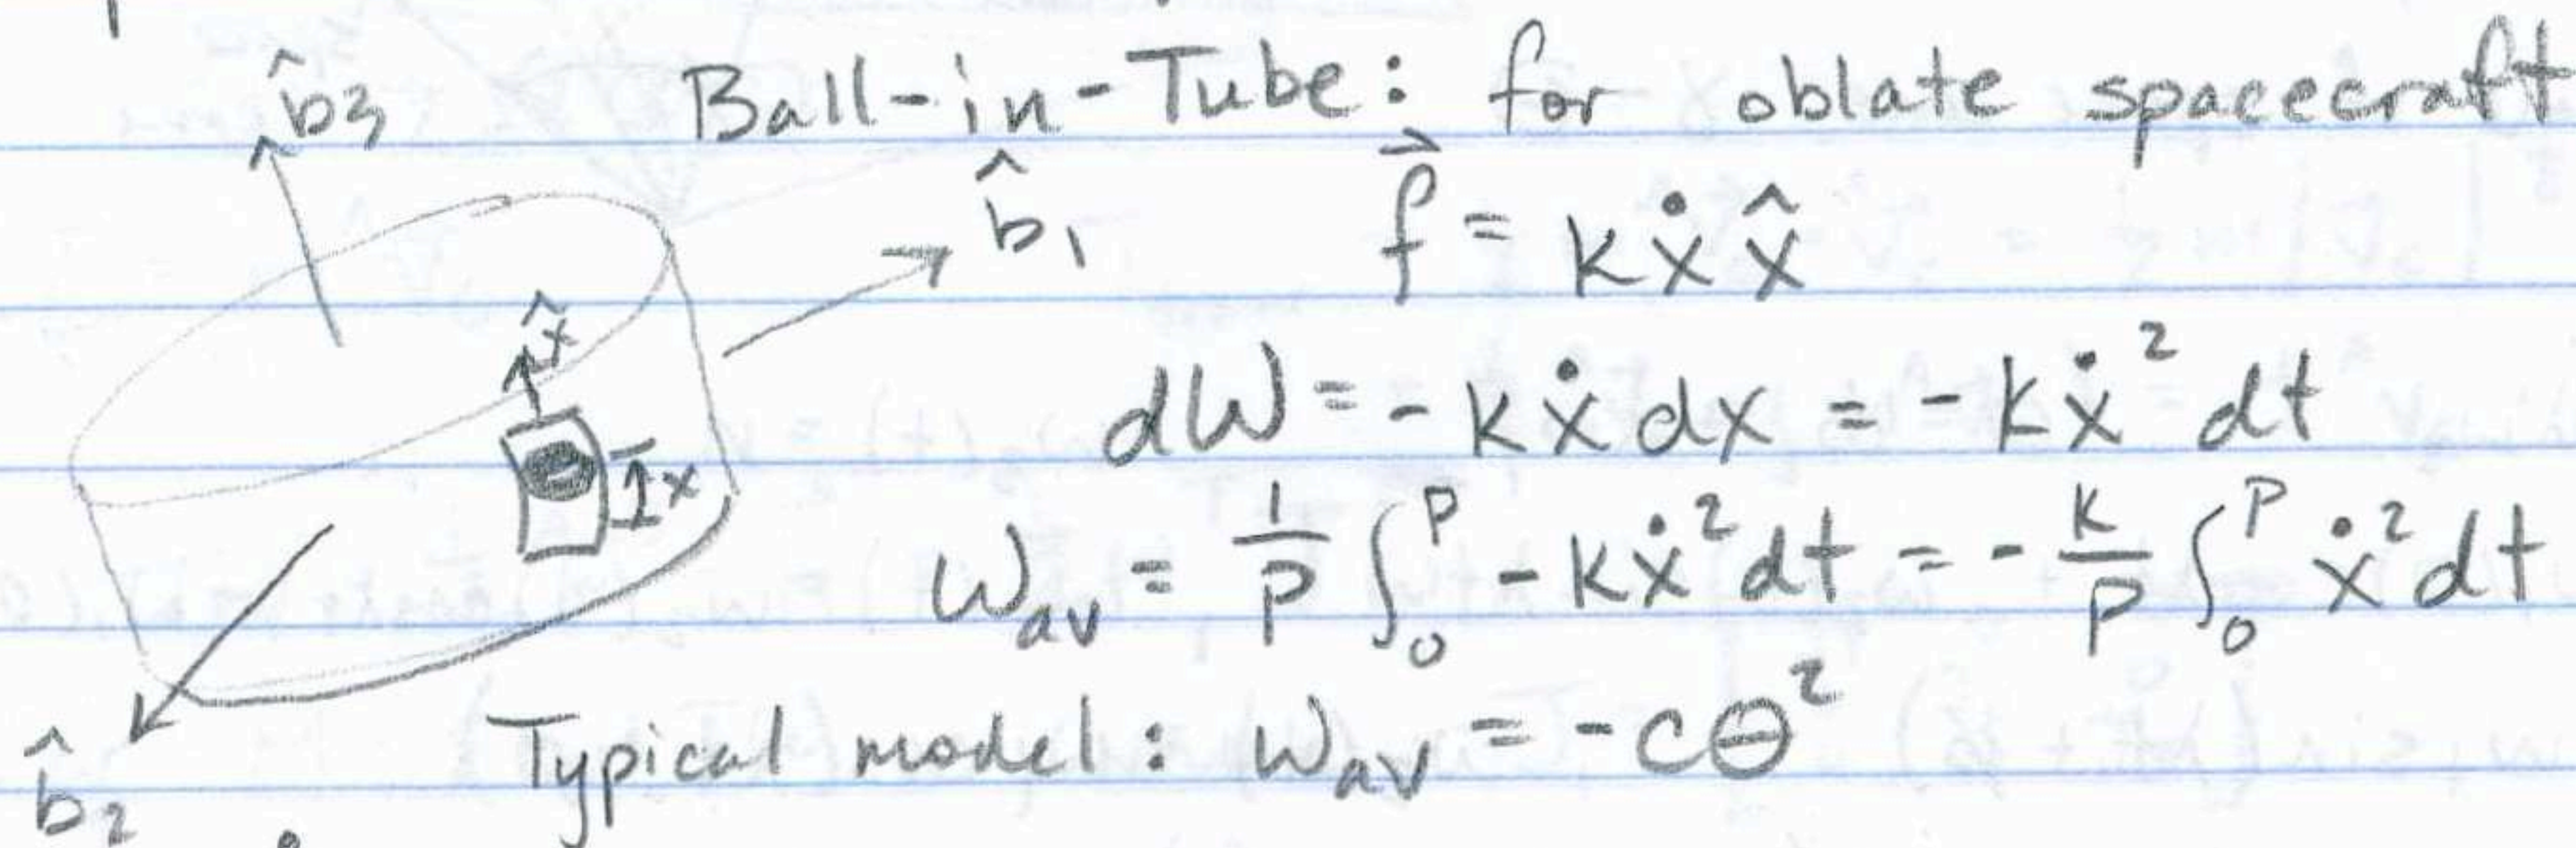 Ball-in-Tube: for oblate spacecraft
b̂3
b̂1
f⃗ = kẋx̂
x̂
dW = -kẋdx = -kẋ² dt
x
Wav = 1/P ∫₀ᴾ -kẋ² dt = -k/P ∫₀ᴾ ẋ² dt
Typical model: Wav = -cΘ²
b̂2